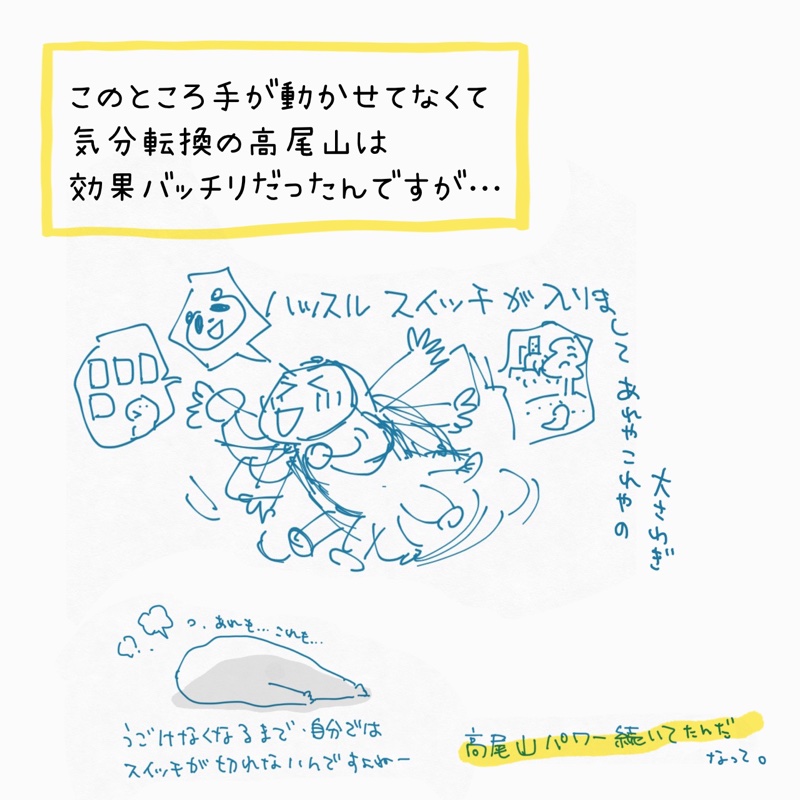 このところ手が動かせてなくて
気分転換の高尾山は
効果バッチリだったんですが…
ハッスル スイッチが入りまして
あれやこれやの
大さわぎ
つ、あれも…これも…
うごけなくなるまで、自分では
スイッチが切れないんですよねー
高尾山パワー続いてたんだ
なって。